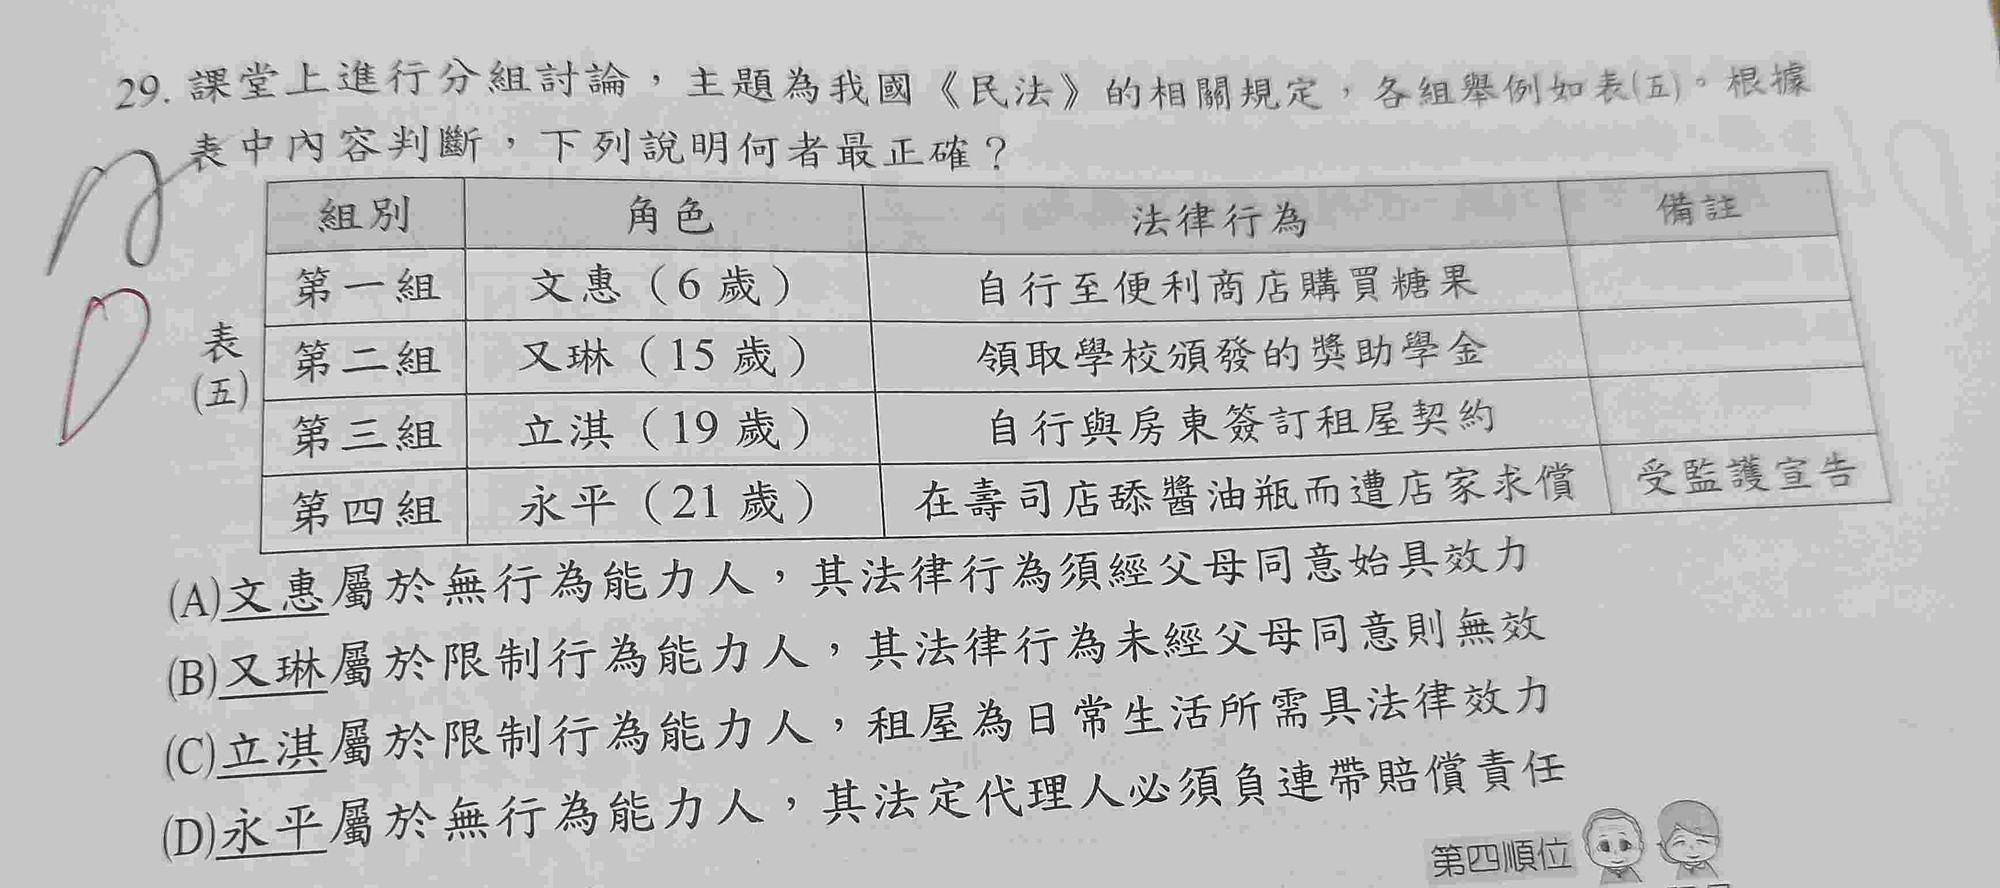 29. 課堂上進行分組討論，主題為我國《民法》的相關規定，各組舉例如表(五)。根據
表中內容判斷，下列說明何者最正確？
組別 角色 法律行為 備註
第一組 文惠（6 歲） 自行至便利商店購買糖果
第二組 又琳（15 歲） 領取學校頒發的獎助學金
第三組 立淇（19 歲） 自行與房東簽訂租屋契約
第四組 永平（21 歲） 在壽司店舔醬油瓶而遭店家求償 受監護宣告
表
(五)
(A)文惠屬於無行為能力人，其法律行為須經父母同意始具效力
(B)又琳屬於限制行為能力人，其法律行為未經父母同意則無效
(C)立淇屬於限制行為能力人，租屋為日常生活所需具法律效力
(D)永平屬於無行為能力人，其法定代理人必須負連帶賠償責任
第四順位